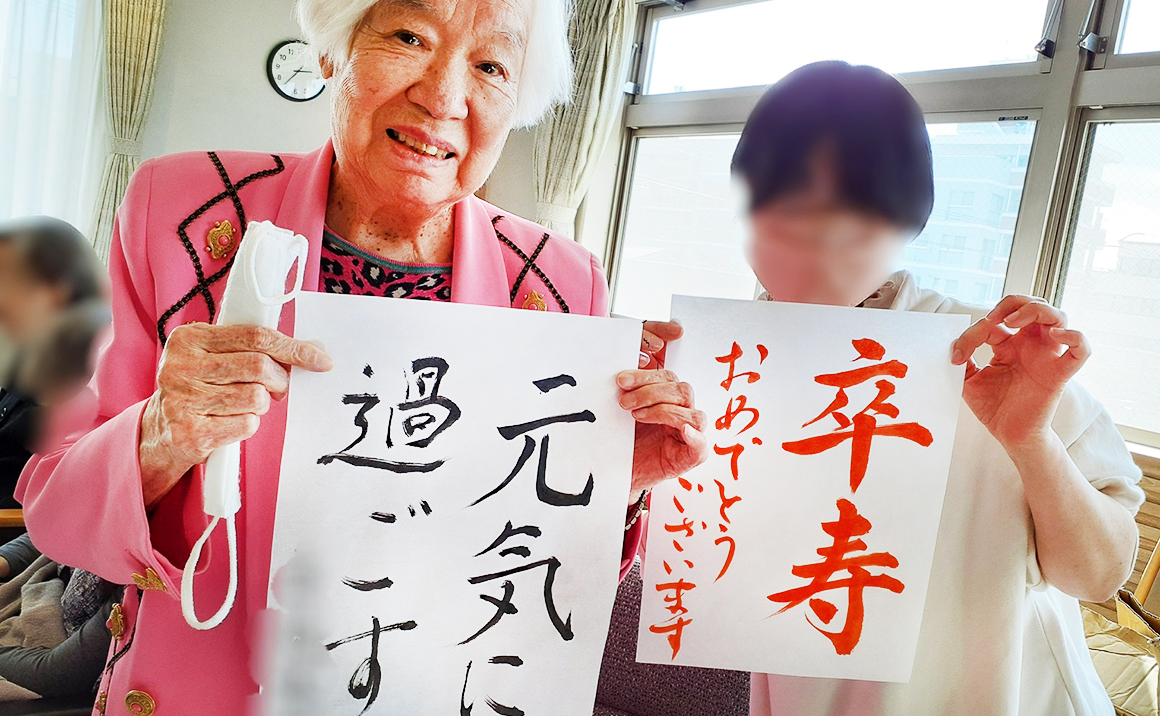 元気に
過ごす
卒寿
おめでとう
ございます